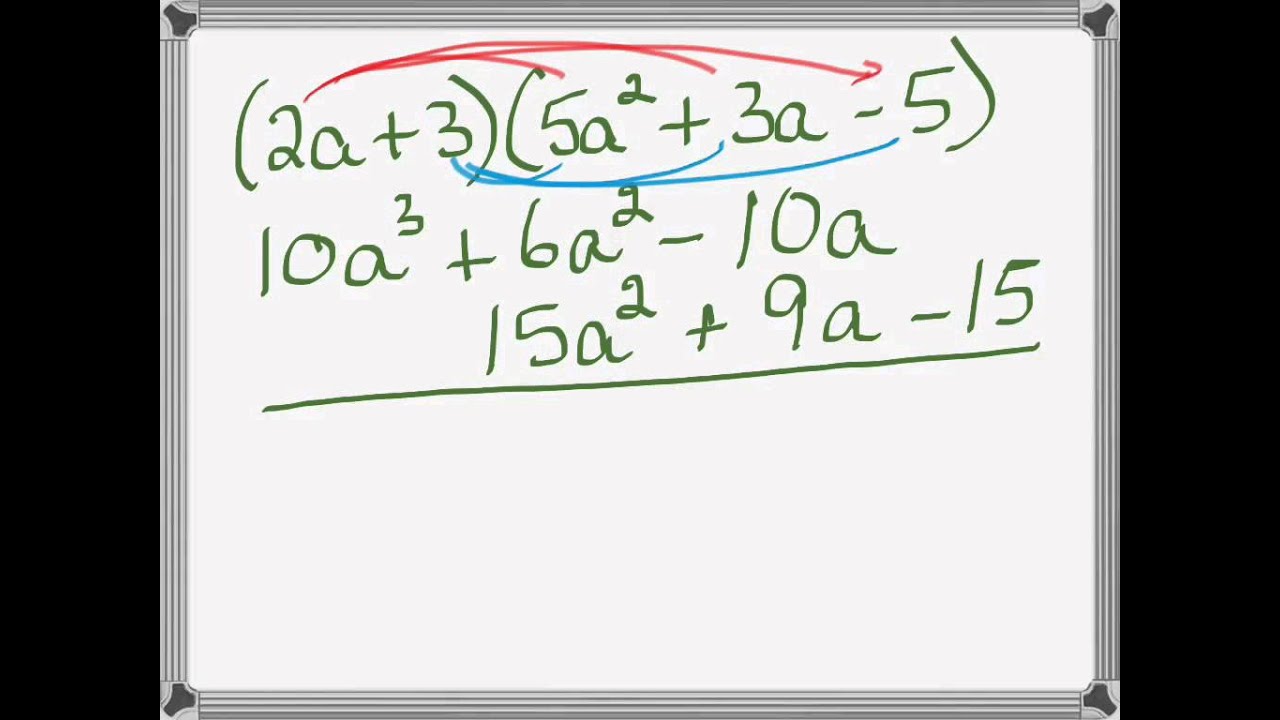 (2a + 3)(5a² + 3a - 5)
10a³ + 6a² - 10a
15a² + 9a - 15